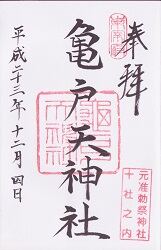 奉拝
亀戸天神社
平成二十三年十二月四日
元准勅祭神社
十社之内